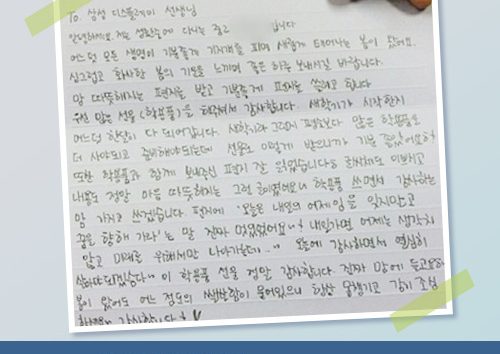 To. 삼성 디스플레이 선생님
안녕하세요. 저는 생활중에 다니는 중2 입니다
어느덧 모든 생명이 기분좋게 기지개를 펴며 새롭게 태어나는 봄이 왔어요.
싱그럽고 화사한 봄의 기운을 느끼며 좋은 하루 보내시길 바랍니다.
맘 따뜻해지는 편지를 받고 기분좋게 편지를 쓰려고 합니다
우선 많은 선물(학용품)을 해주셔서 감사합니다. 새학기가 시작한지
어느덧 한달이 다 되어갑니다. 새학기라 그런지 평소보다 많은 학용품도
더 사야되고 준비해야되는데 선물로 이렇게 받으니까 기분 좋았어요
또한 학용품과 함께 보내주신 편지 잘 읽었습니다 이쁘고
내용도 정말 마음 따뜻해지는 그런 학용품 쓰면서 감사하는
맘 가지고 쓰겠습니다 편지에 '오늘은 내일의 어제임을 잊지말고
꿈을 향해 가라'는 말 진짜 멋있었어요 내일가면 어제는 생각치
않고 미래를 위해서만 나아가는데.. 오늘에 감사하면서 열심히
살아야되겠다~ 이 학용품 선물 정말 감사합니다. 진짜 맘에 들고요
봄이 왔어도 어느 정도의 쌀쌀함이 묻어있으니 항상 몸챙기고 감기 조심
감사합니다